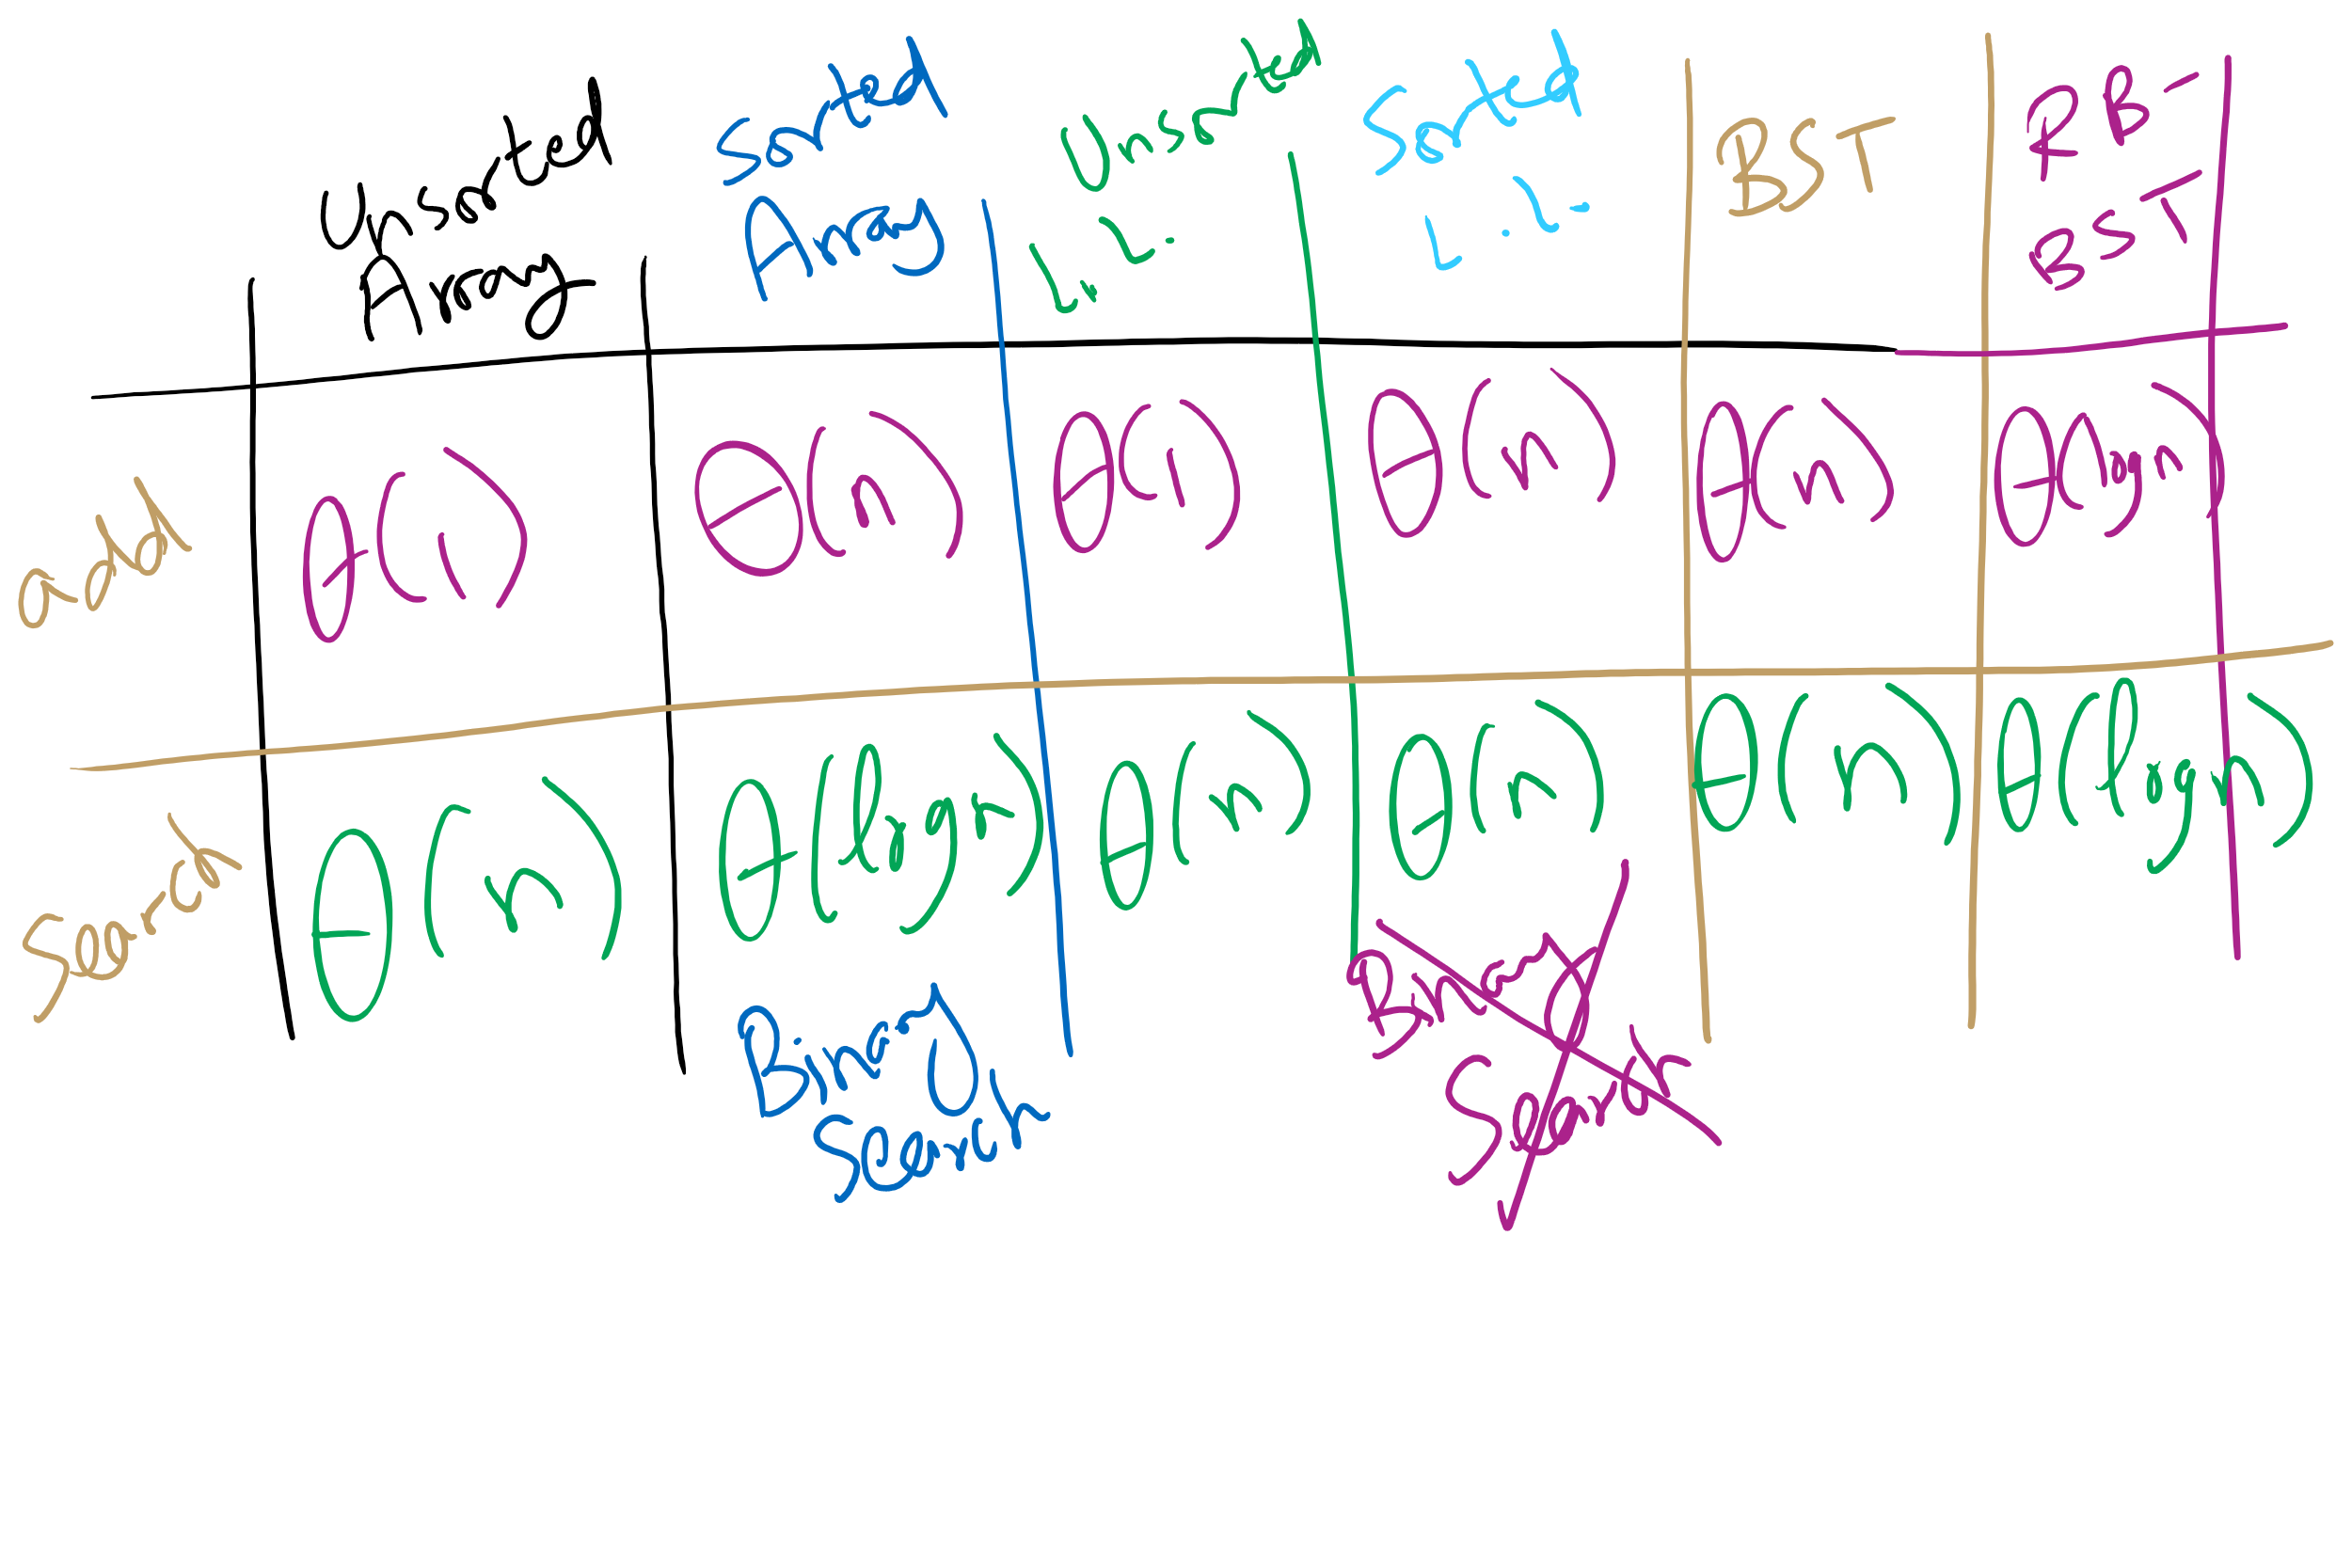 Unsorted Array
Sorted Array
Unsorted L.L.
Sorted L.L.
BST
RB-BST
add θ(1) θ(n) θ(1) θ(n) θ(n) θ(lgn)
Search θ(n) θ(lgn) θ(n) θ(n) θ(n) θ(lgn)
Binary Search
Binary Search